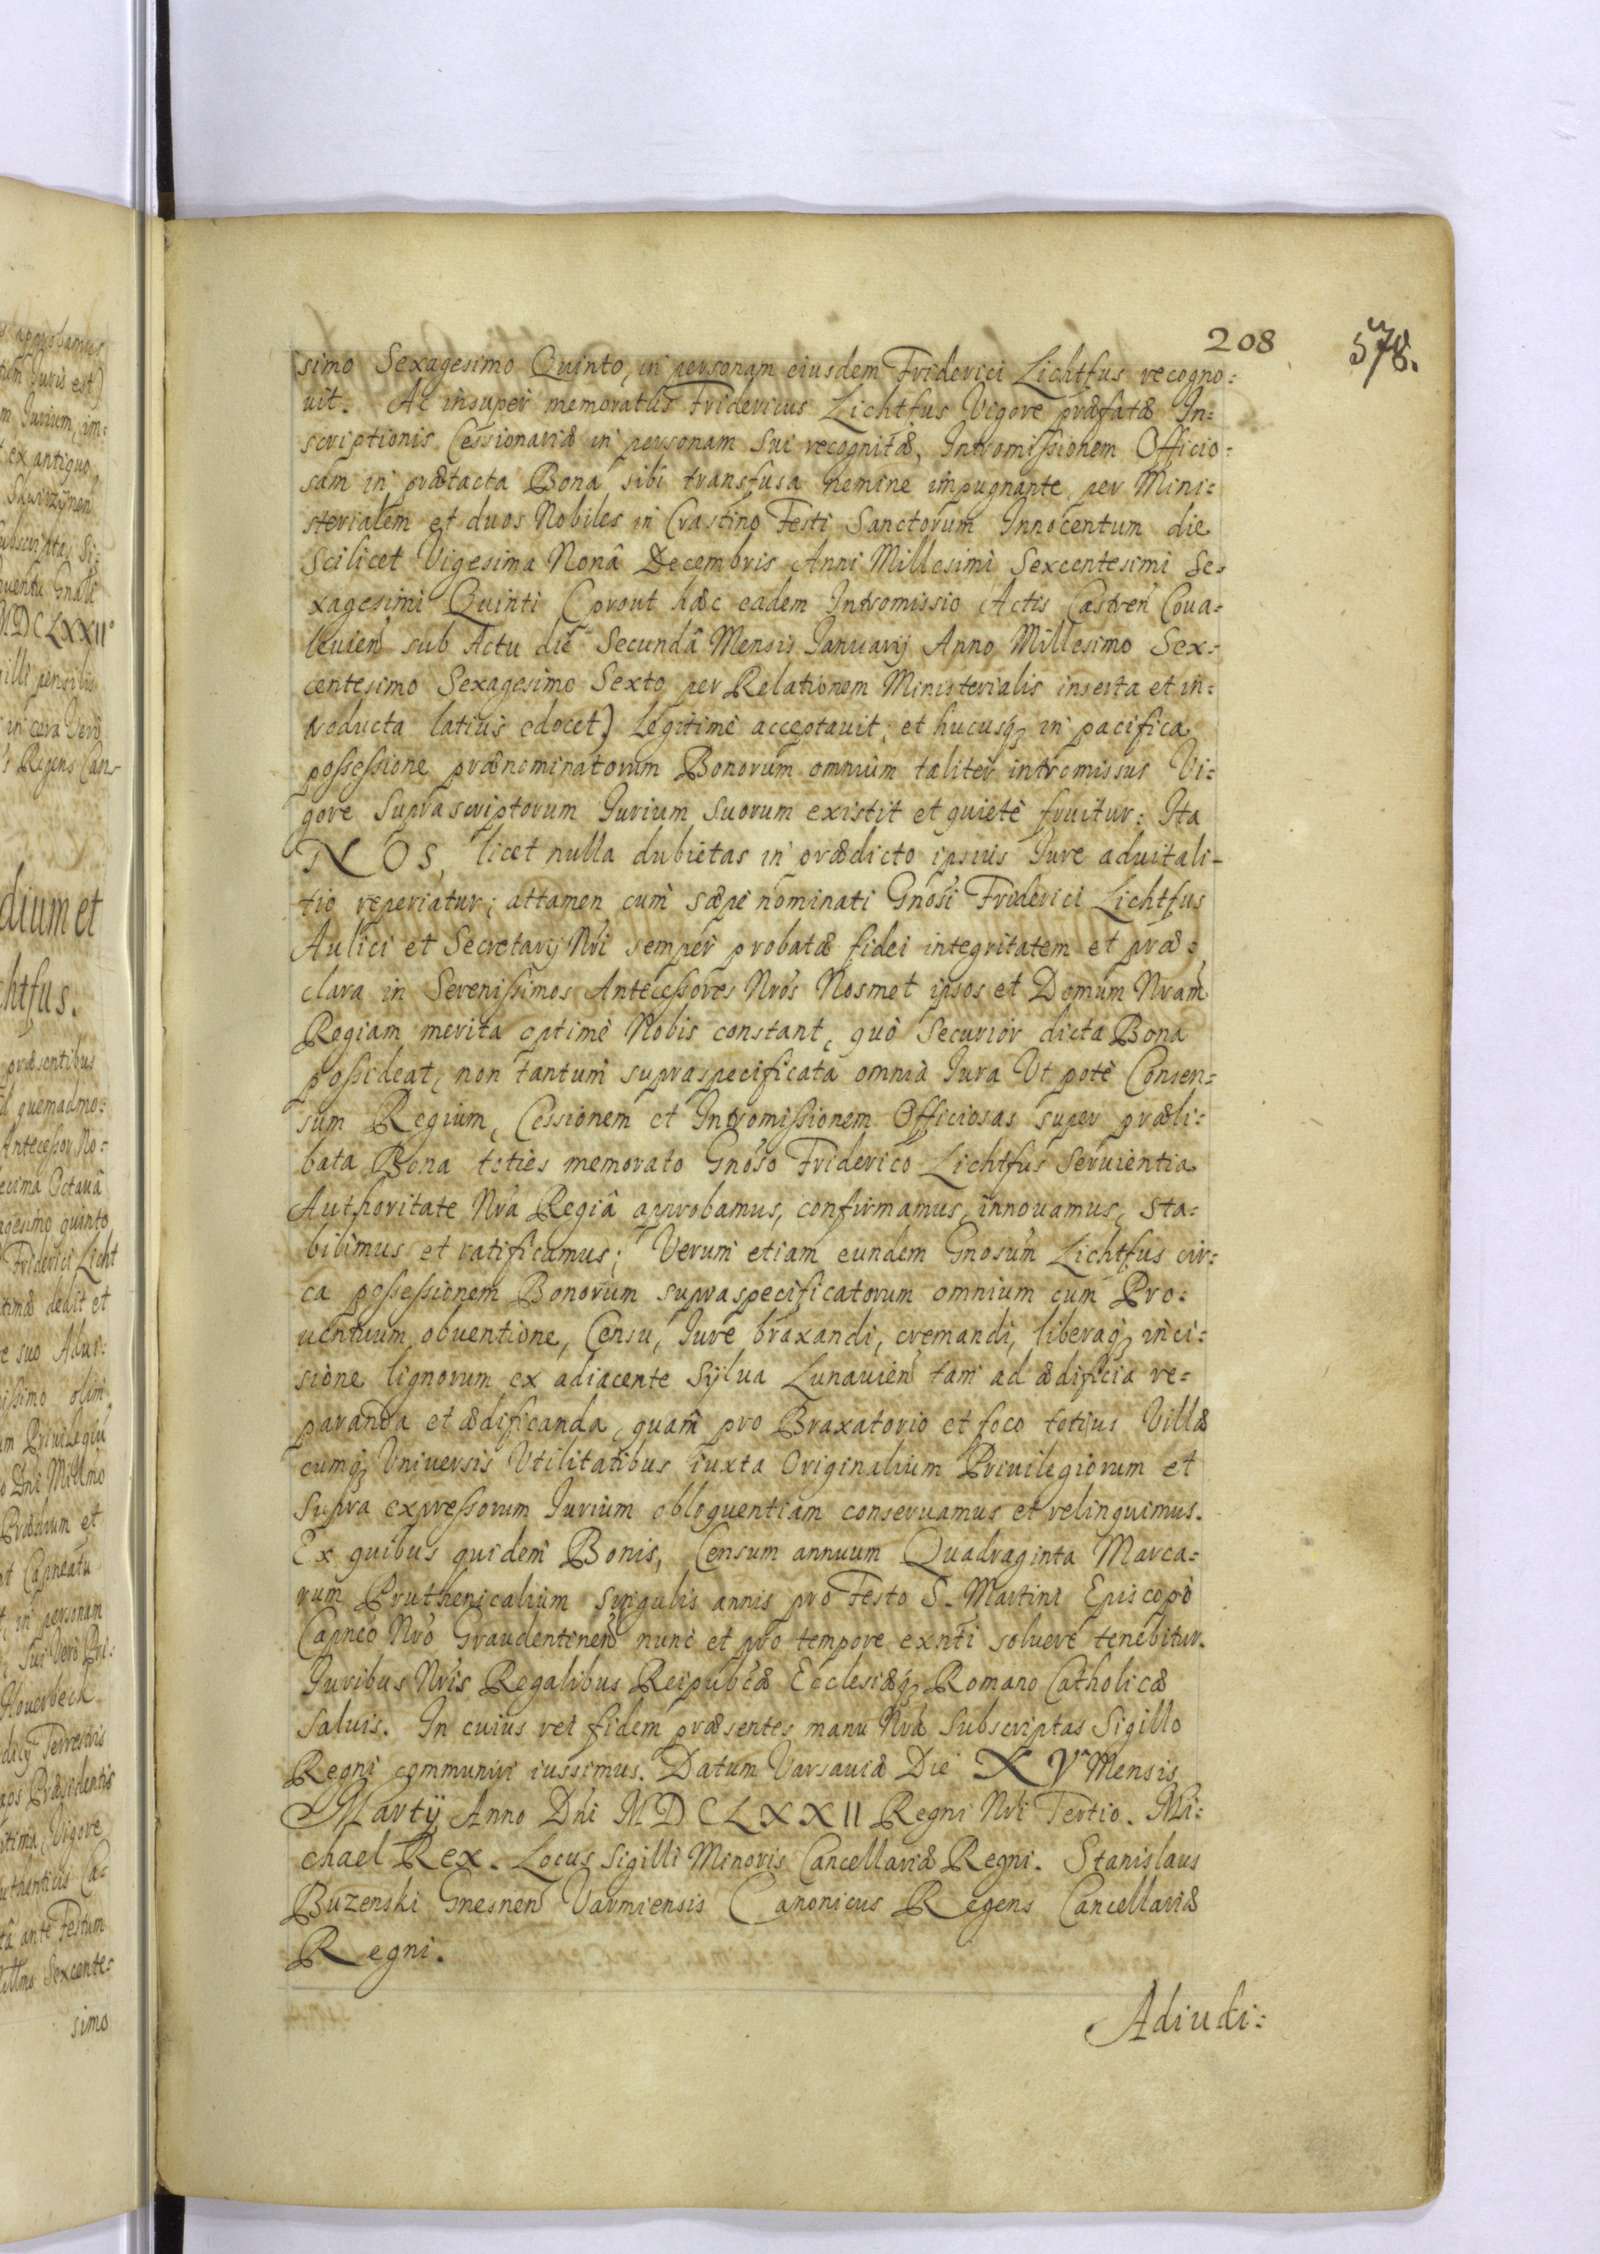 208
578.
simo Sexagesimo Quinto, in personam eiusdem Friderici Lichtfus recogno:
uit. Ac insuper memoratus Fridericus Lichtfus Vigore præfatæ In:
scriptionis Cessionariæ in personam Sui recognitæ, Intromissionem Officio:
sam in prætacta Bona sibi transfusa nemine impugnante per Mini:
sterialem et duos Nobiles in Crastino Festi Sanctorum Innocentum die
Scilicet Vigesima Nonâ Decembris Anni Millesimi Sexcentesimi Se:
xagesimi Quinti (prout hæc eadem Intromissio Actis Castren Coua:
leuien sub Actu die Secundâ Mensis Ianuarij Anno Millesimo Sex:
centesimo Sexagesimo Sexto per Relationem Ministerialis inserta et in:
troducta latius edocet) legitimè acceptauit, et hucusq; in pacifica
possessione prænominatorum Bonorum omnium taliter intromissus Vi:
gore Suprascriptorum Iurium Suorum existit et quietè fruitur: Ita
NOS, licet nulla dubietas in prædicto ipsius Iure aduitali-
tio reperiatur; attamen cum sæpe nominati Gnosi Friderici Lichtfus
Aulici et Secretarij Nri semper probatæ fidei integritatem et præ:
clara in Serenissimos Antecessores Nros Nosmet ipsos et Domum Nram
Regiam merita optimè Nobis constant, quò Securior dicta Bona
possideat, non tantum supraspecificata omnia Iura Ut potè Consen:
sum Regium, Cessionem et Intromissionem Officiosas super præli:
bata Bona toties memorato Gnoso Friderico Lichtfus Seruientia
Authoritate Nra Regiâ approbamus, confirmamus, innouamus, sta:
bilimus et ratificamus; Verum etiam eundem Gnosum Lichtfus cir:
ca possessionem Bonorum supraspecificatorum omnium cum Pro:
uentuum obuentione, Censu, Iure braxandi, cremandi, liberaq; inci:
sione lignorum ex adiacente Sylua Lunauien tam ad ædificia re:
paranda et ædificanda, quam pro Braxatorio et foco totius Villæ
cumq; Universis Utilitatibus iuxta Originalium Priuilegiorum et
Supra expressorum Iurium obloquentiam conseruamus et relinquimus.
Ex quibus quidem Bonis, Censum annuum Quadraginta Marca:
rum Pruthenicalium singulis annis pro Festo S. Martini Episcopo
Capneo Nro Graudentinen nunc et pro tempore exnti soluere tenebitur.
Iuribus Nris Regalibus Reipubcæ Ecclesiæq; Romano Catholicæ
Saluis. In cuius rei fidem præsentes manu Nra Subscriptas Sigillo
Regni communiri iussimus. Datum Varsauiæ Die XV Mensis
Martij Anno Dni MDCLXXII Regni Nri Tertio. Mi:
chael Rex. Locus Sigilli Minoris Cancellariæ Regni. Stanislaus
Buzenski Gnesnen Varmiensis Canonicus Regens Cancellariæ
Regni.
Adiudi: